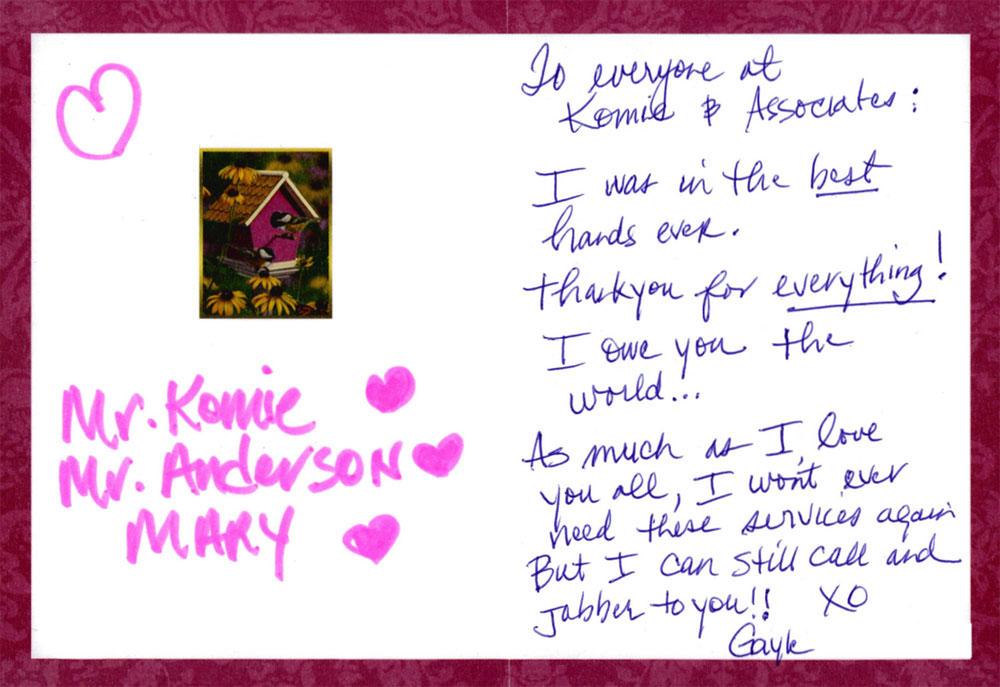 Mr. Komie
Mr. Anderson
MARY
To everyone at
Komie & Associates:
I was in the best
hands ever.
thankyou for everything!
I owe you the
world...
As much as I love
you all, I wont ever
need these services again
But I can still call and
jabber to you!! XO
Gayle